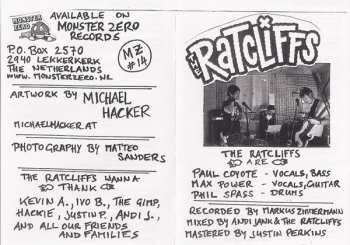 MONSTER ZERO
AVAILABLE ON
MONSTER ZERO
RECORDS
P.O. BOX 2570
2940 LEKKERKERK
THE NETHERLANDS
WWW.MONSTERZERO.NL
MZ
#14
ARTWORK BY MICHAEL
HACKER
MICHAELHACKER.AT
PHOTOGRAPHY BY MATTEO
SANDERS
THE RATCLIFFS WANNA
THANK
KEVIN A., IVO B., THE GIMP,
HACKIE, JUSTIN P., ANDI J.,
AND ALL OUR FRIENDS
AND FAMILIES
THE
RATCLIFFS
THE RATCLIFFS
ARE
PAUL COYOTE - VOCALS, BASS
MAX POWER - VOCALS, GUITAR
PHIL SPASS - DRUMS
RECORDED BY MARKUS ZIMMERMANN
MIXED BY ANDI JANK & THE RATCLIFFS
MASTERED BY JUSTIN PERKINS